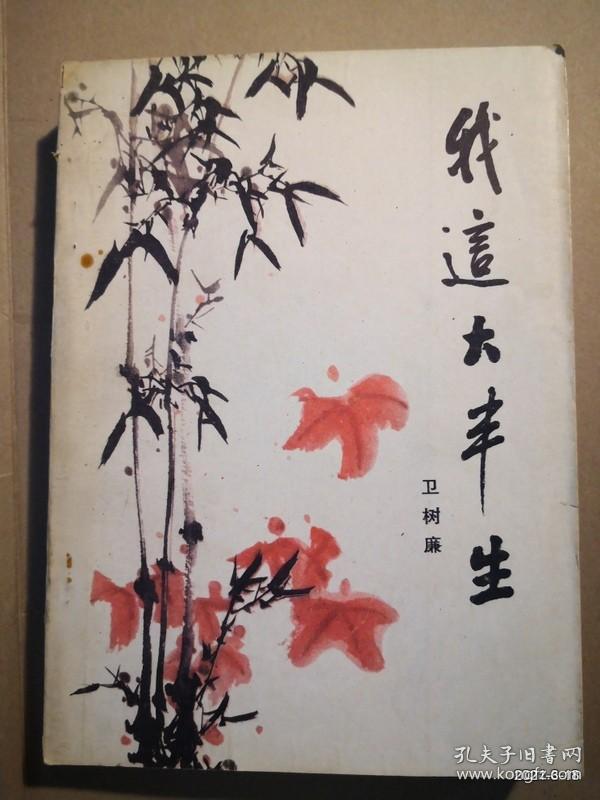 我這大半生
卫树廉
孔夫子旧书网
www.kongfz.com